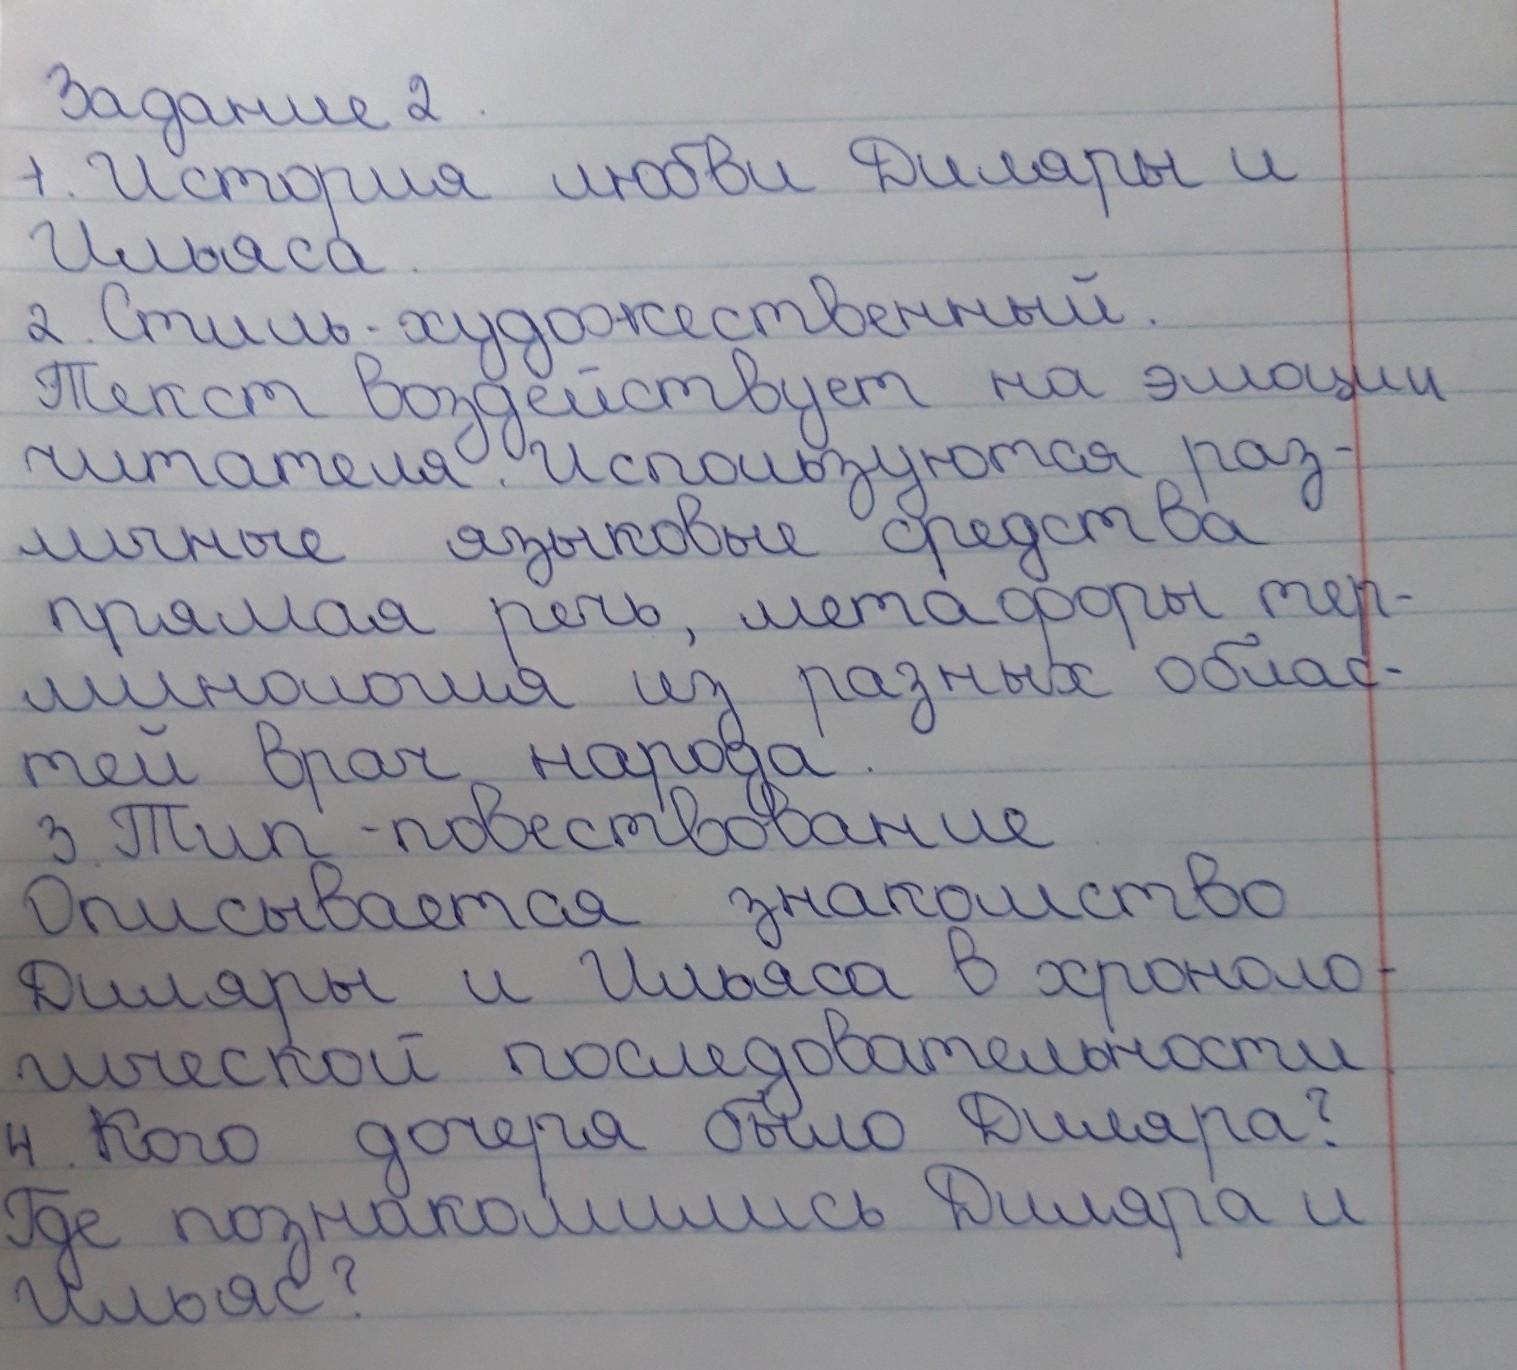 Задание 2.
1. История любви Диляры и
Ильяса.
2. Стиль - художественный.
Текст воздействует на эмоции
читателя. Используются раз-
личные языковые средства
прямая речь, метафоры тер-
минология из разных облас-
тей врач народа.
3. Тип - повествование
Описывается знакомство
Диляры и Ильяса в хроноло-
гической последовательности
4. Кого дочеря было Диляра?
Где познакомились Диляра и
Ильяс?